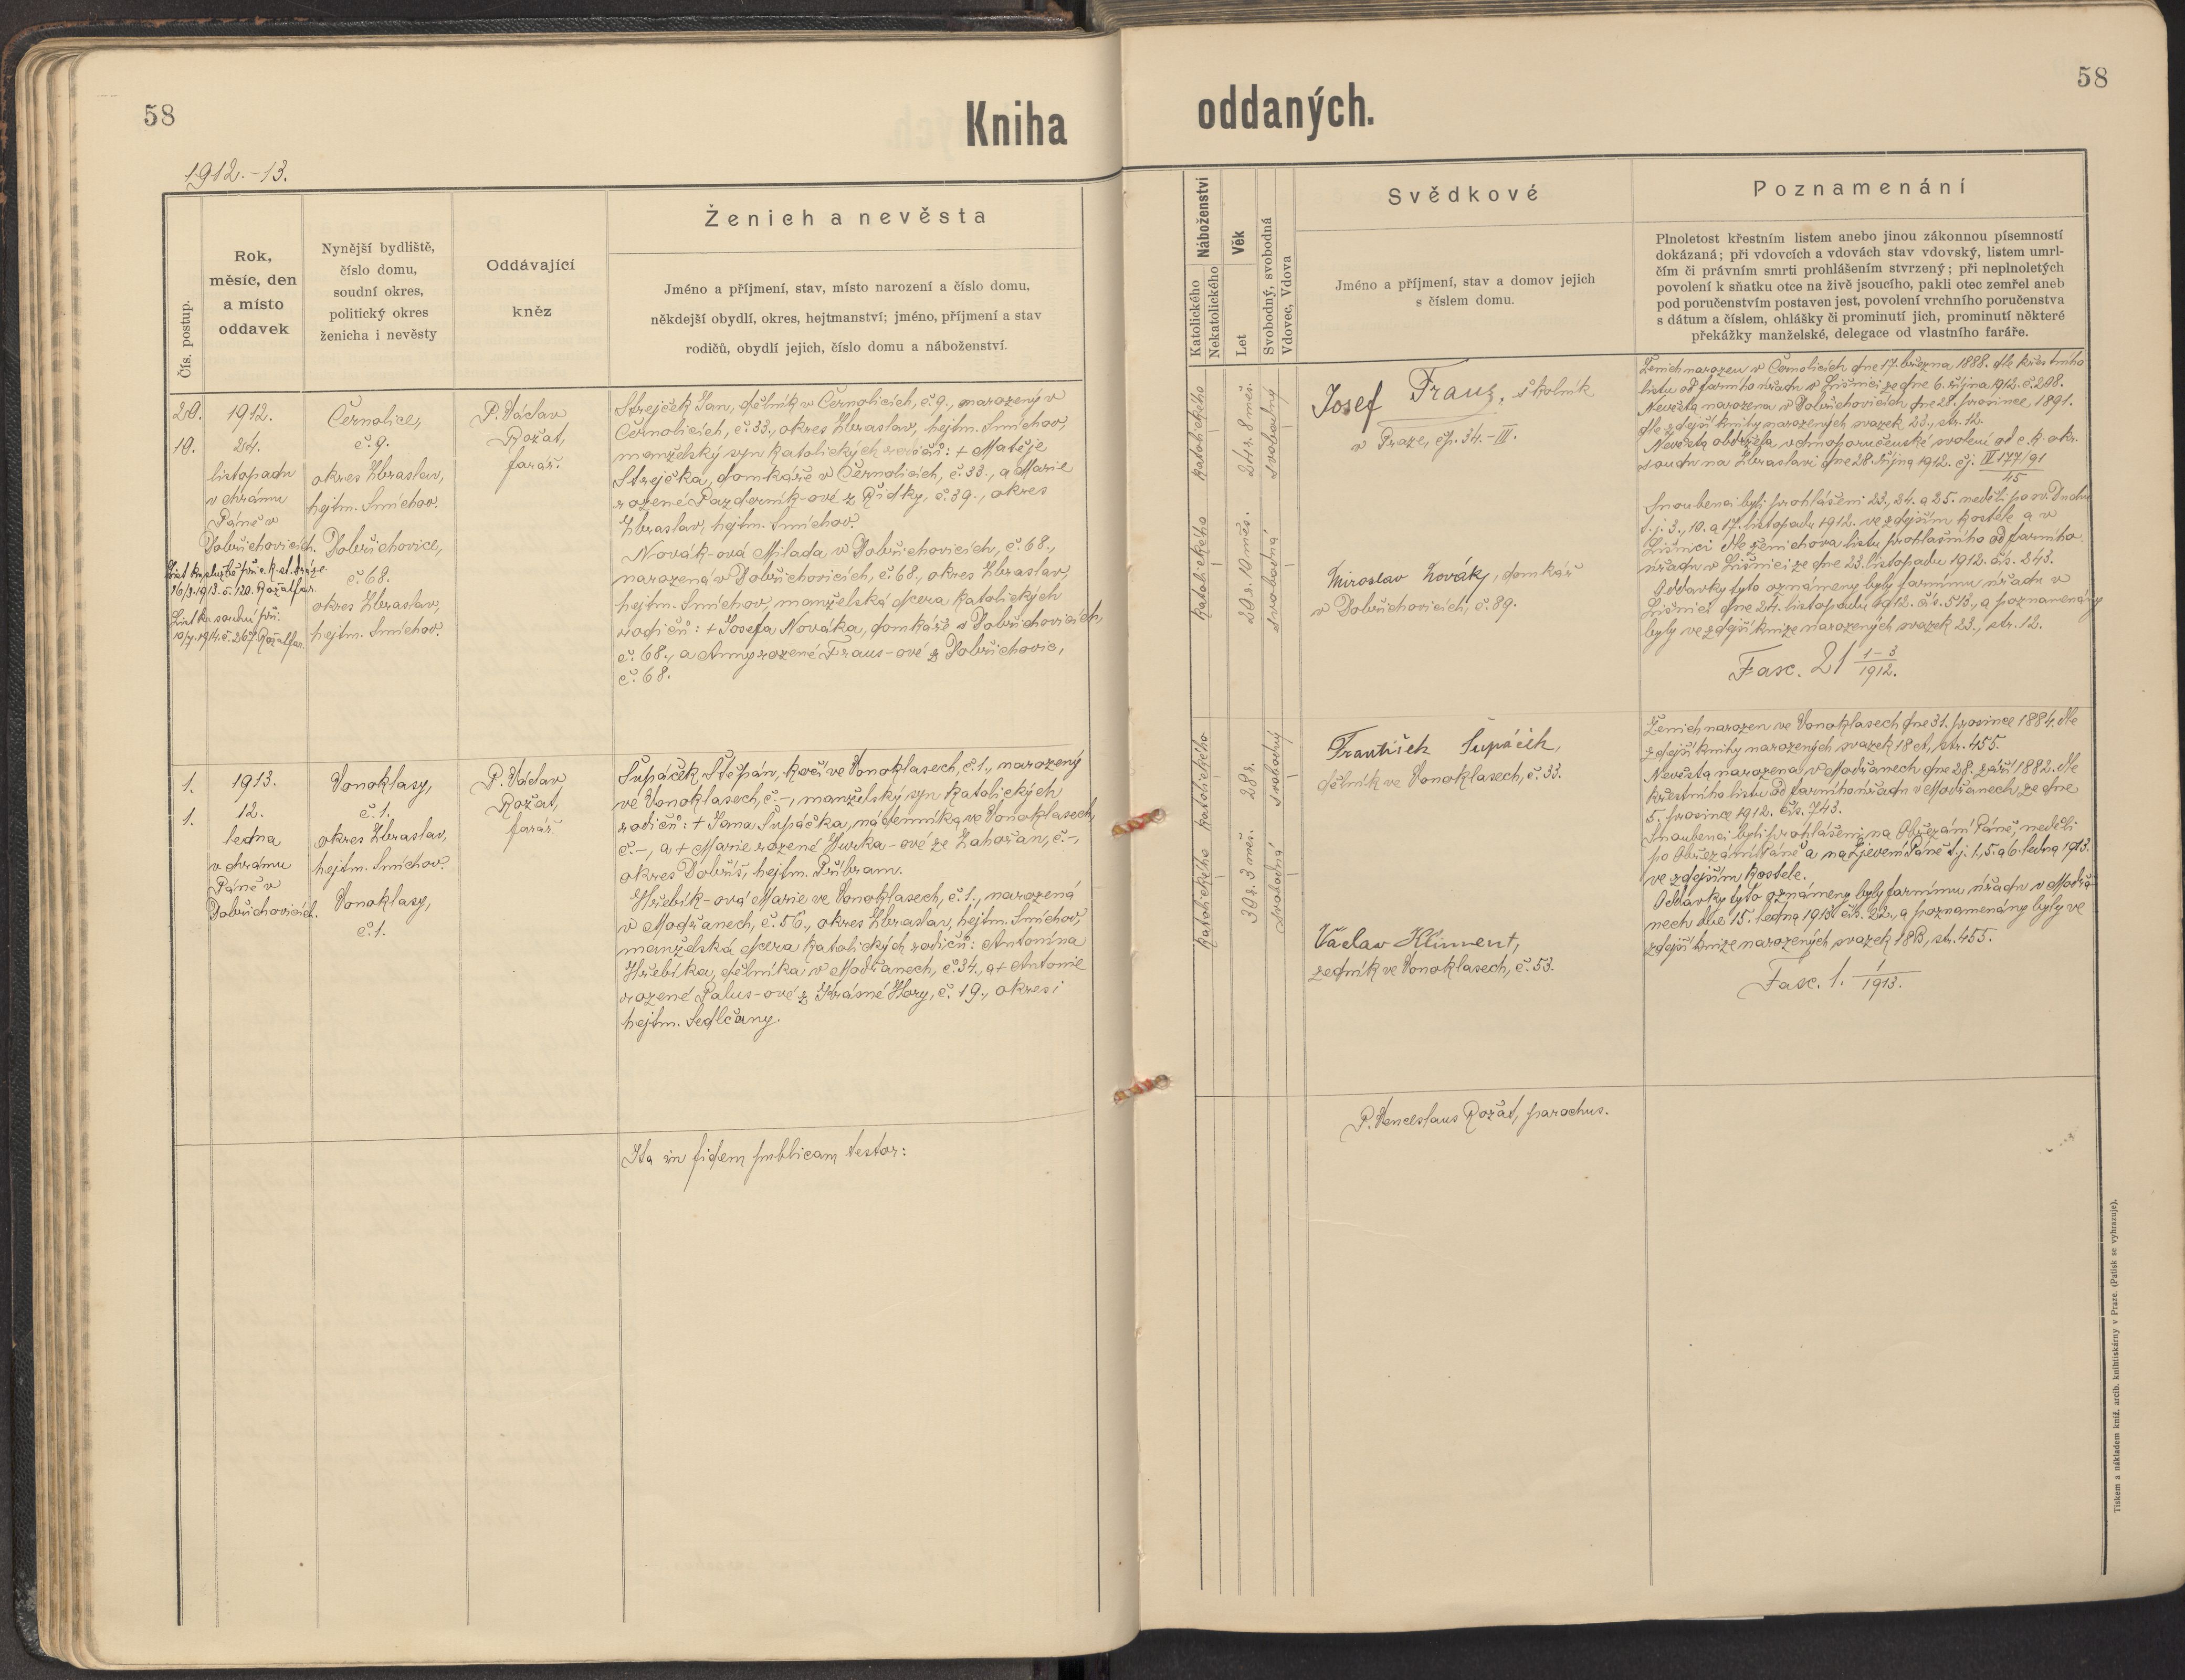 58
Kniha
1912.-13.
Čís. postup.
Rok,
měsíc, den
a místo
oddavek
Nynější bydliště,
číslo domu,
soudní okres,
politický okres
ženicha i nevěsty
Oddávající
kněz
Ženich a nevěsta
Jméno a příjmení, stav, místo narození a číslo domu,
někdejší obydlí, okres, hejtmanství; jméno, příjmení a stav
rodičů, obydlí jejich, číslo domu a náboženství.
20.
10.
1912.
24.
listopadu
v chrámu
Páně v
Dobřichovicích.
List ku službě při c. k. st. dráze
16/3. 1913. č. 120. Rožat far.
List ku soudu při.
10/7. 1914. č. 267. Rožat far.
Černolice,
č. 9.
okres Zbraslav,
hejtm. Smíchov.
Dobřichovice,
č. 68.
okres Zbraslav,
hejtm. Smíchov.
P. Václav
Rožat,
farář.
Strejček Jan, dělník v Černolicích, č. 9., narozený v
Černolicích, č. 33., okres Zbraslav, hejtm. Smíchov,
manželský syn katolických rodičů: + Matěje
Strejčka, domkáře v Černolicích, č. 33., a Marie
rozené Pazderník-ové z Řidky, č. 39., okres
Zbraslav, hejtm. Smíchov.
Novák-ová Milada v Dobřichovicích, č. 68.,
narozená v Dobřichovicích, č. 68., okres Zbraslav,
hejtm. Smíchov, manželská dcera katolických
rodičů: + Josefa Nováka, domkáře v Dobřichovicích,
č. 68., a Anny rozené Fraus-ové z Dobřichovic,
č. 68.
1.
1.
1913.
12.
ledna
v chrámu
Páně v
Dobřichovicích.
Vonoklasy,
č. 1.
okres Zbraslav,
hejtm. Smíchov.
Vonoklasy,
č. 1.
P. Václav
Rožat,
farář.
Šupáček Štěpán, kočí ve Vonoklasech, č. 1., narozený
ve Vonoklasech, č. -, manželský syn katolických
rodičů: + Jana Šupáčka, nádenníka ve Vonoklasech,
č. -, a + Marie rozené Hurka-ové ze Zahořan, č. -,
okres Dobříš, hejtm. Příbram.
Hřebík-ová Marie ve Vonoklasech, č. 1., narozená
v Modřanech, č. 56., okres Zbraslav, hejtm. Smíchov,
manželská dcera katolických rodičů: Antonína
Hřebíka, dělníka v Modřanech, č. 34., a + Antonie
rozené Palus-ové z Krásné Hory, č. 19., okres i
hejtm. Sedlčany.
Ita in fidem publicam testor:
58
oddaných.
Náboženství
Katolického
Nekatolického
Věk
Let
Svobodný, svobodná
Vdovec, Vdova
Svědkové
Jméno a příjmení, stav a domov jejich
s číslem domu.
Poznamenání
Plnoletost křestním listem anebo jinou zákonnou písemností
dokázaná; při vdovcích a vdovách stav vdovský, listem umrl-
čím či právním smrti prohlášením stvrzený; při neplnoletých
povolení k sňatku otce na živě jsoucího, pakli otec zemřel aneb
pod poručenstvím postaven jest, povolení vrchního poručenstva
s dátum a číslem, ohlášky či prominutí jich, prominutí některé
překážky manželské, delegace od vlastního faráře.
katolického
24 r. 8 měs.
svobodný
katolického
20 r. 10 měs.
svobodná
Josef Fraus, školník
v Praze, čp. 34.-III.
Miroslav Novák, domkář
v Dobřichovicích, č. 89.
Ženich narozen v Černolicích dne 17. března 1888. dle křestního
listu od farního úřadu v Líšnici ze dne 6. října 1912. č. 208.
Nevěsta narozena v Dobřichovicích dne 28. prosince 1891.
dle zdejší knihy narozených svazek 23., str. 12.
Nevěsta obdržela vrchnoporučenské svolení od c. k. okr.
soudu na Zbraslavi dne 28. října 1912. čj. IV 177/91
45
Snoubenci byli prohlášeni 23., 24. a 25. neděli po sv. Duchu
t. j. 3., 10. a 17. listopadu 1912. ve zdejším kostele a v
Líšnici dle ženichova listu prohlašního od farního
úřadu v Líšnici ze dne 23. listopadu 1912. čís. 243.
Oddavky tyto oznámeny byly farnímu úřadu v
Líšnici dne 24. listopadu 1912. čís. 513., a poznamenány
byly ve zdejší knize narozených svazek 23., str. 12.
Fasc. 21 1-3/1912.
katolického
28 r.
svobodný
katolického
30 r. 3 měs.
svobodná
František Šupáček,
dělník ve Vonoklasech, č. 33.
Václav Kliment,
zedník ve Vonoklasech, č. 53.
Ženich narozen ve Vonoklasech dne 31. prosince 1884. dle
zdejší knihy narozených svazek 18 , str. 455.
Nevěsta narozena v Modřanech dne 28. září 1882. dle
křestního listu od farního úřadu v Modřanech ze dne
5. prosince 1912. čís. 743.
Snoubenci byli prohlášeni na Obřezání Páně, neděli
po Obřezání Páně a na Zjevení Páně t. j. 1., 5. a 6. ledna 1913.
ve zdejším kostele.
Oddavky tyto oznámeny byly farnímu úřadu v Modřa-
nech dne 15. ledna 1913. čís. 22., a poznamenány byly ve
zdejší knize narozených svazek 18B, str. 455.
Fasc. 1. 1/1913.
P. Venceslaus Rožat, parochus.
Tiskem a nákladem kníž. arcib. knihtiskárny v Praze. (Patisk se vyhrazuje).